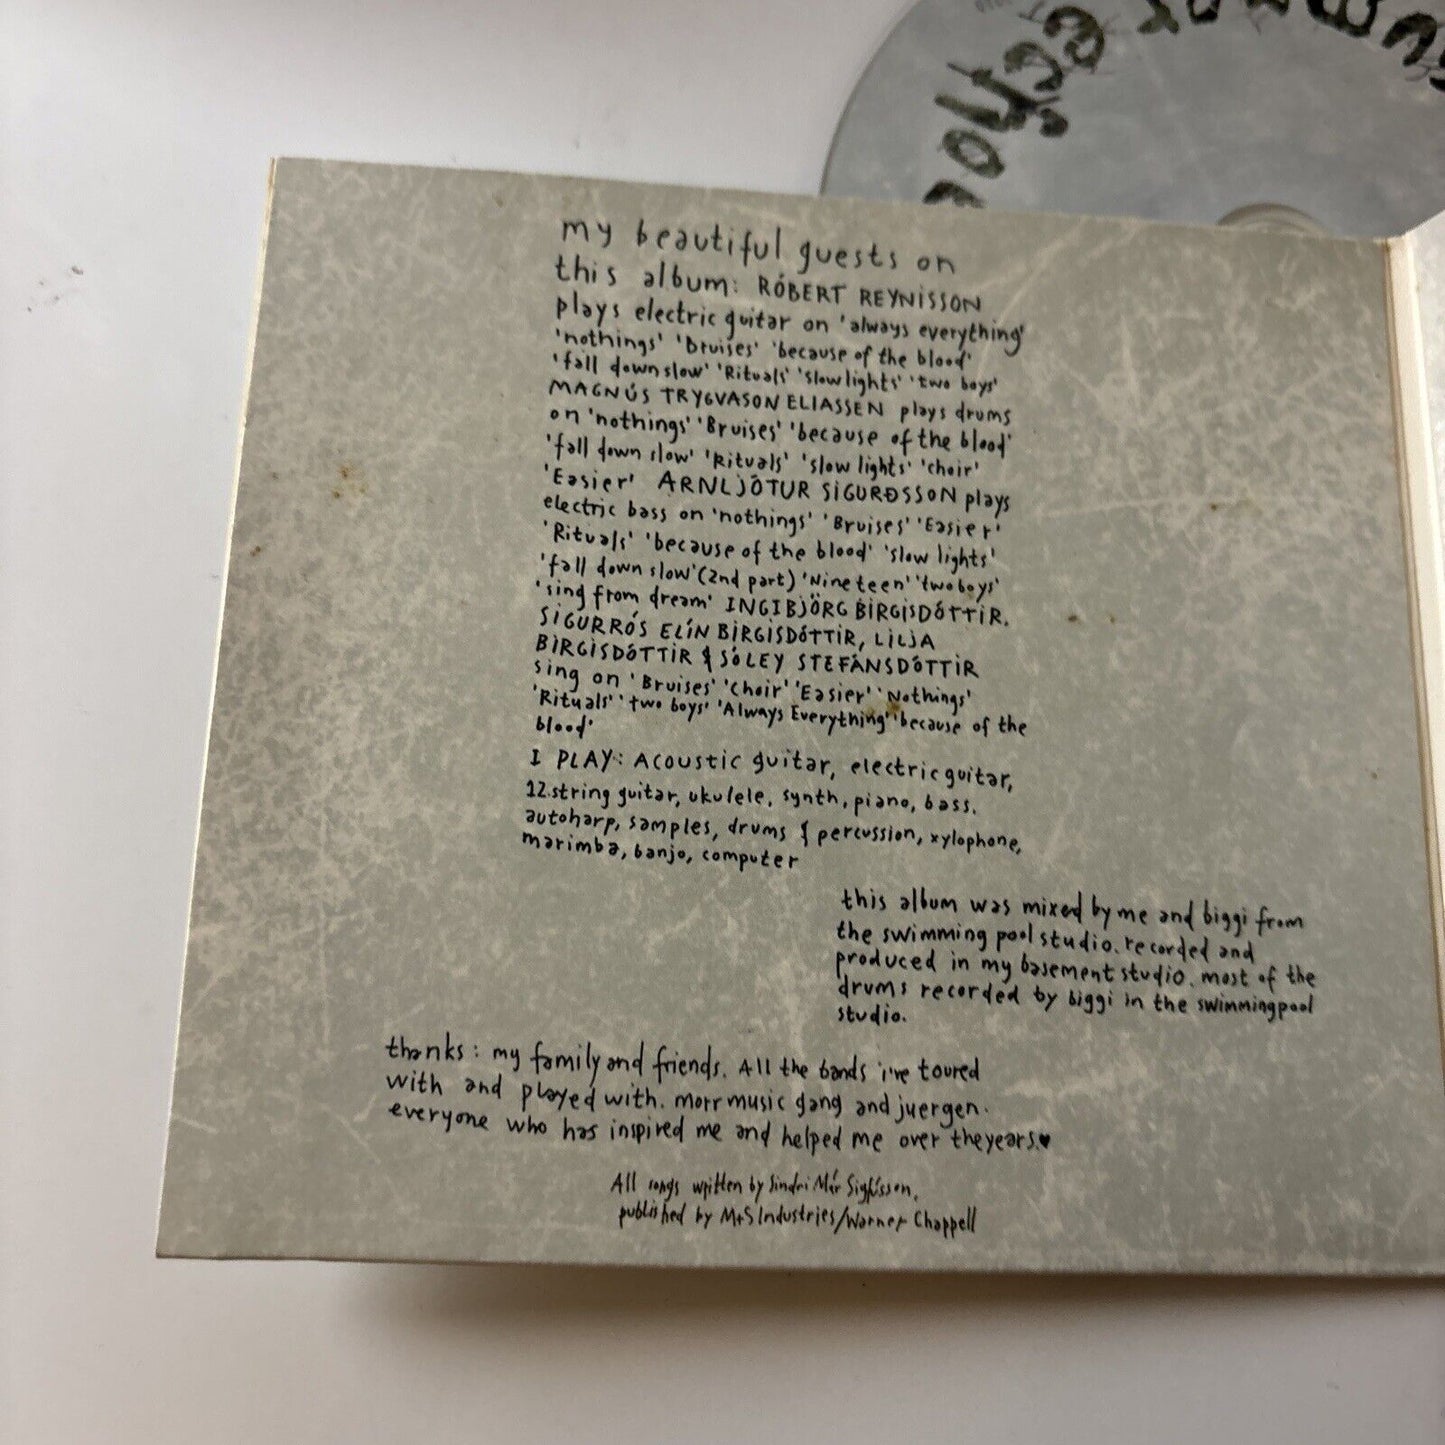 my beautiful guests on
this album: RÓBERT REYNISSON
plays electric guitar on 'always everything'
'nothings' 'Bruises' 'because of the blood'
'fall down slow' 'Rituals' 'slow lights' 'two boys'
MAGNÚS TRYGVASON ELIASSEN plays drums
on 'nothings' 'Bruises' 'because of the blood'
'fall down slow' 'Rituals' 'slow lights' 'choir'
'Easier' ARNLJÓTUR SIGURÐSSON plays
electric bass on 'nothings' 'Bruises' 'Easier'
'Rituals' 'because of the blood' 'slow lights'
'fall down slow' (2nd part) 'Nineteen' 'two boys'
'sing from dream' INGIBJÖRG BIRGISDÓTTIR.
SIGURRÓS ELÍN BIRGISDÓTTIR, LILJA
BIRGISDÓTTIR & SÓLEY STEFÁNSDÓTTIR
sing on 'Bruises' 'Choir' 'Easier' 'Nothings'
'Rituals' 'two boys' 'Always Everything' 'because of the
blood'
I PLAY: Acoustic guitar, electric guitar,
12.string guitar, ukulele, synth, piano, bass.
autoharp, samples, drums & percussion, xylophone,
marimba, banjo, computer
this album was mixed by me and biggi from
the swimming pool studio. recorded and
produced in my basement studio. most of the
drums recorded by biggi in the swimmingpool
studio.
thanks: my family and friends. All the bands i've toured
with and played with. morr music gang and juergen.
everyone who has inspired me and helped me over the years.♥
All songs written by Sindri Már Sigfússon.
published by M+S Industries/Warner Chappell